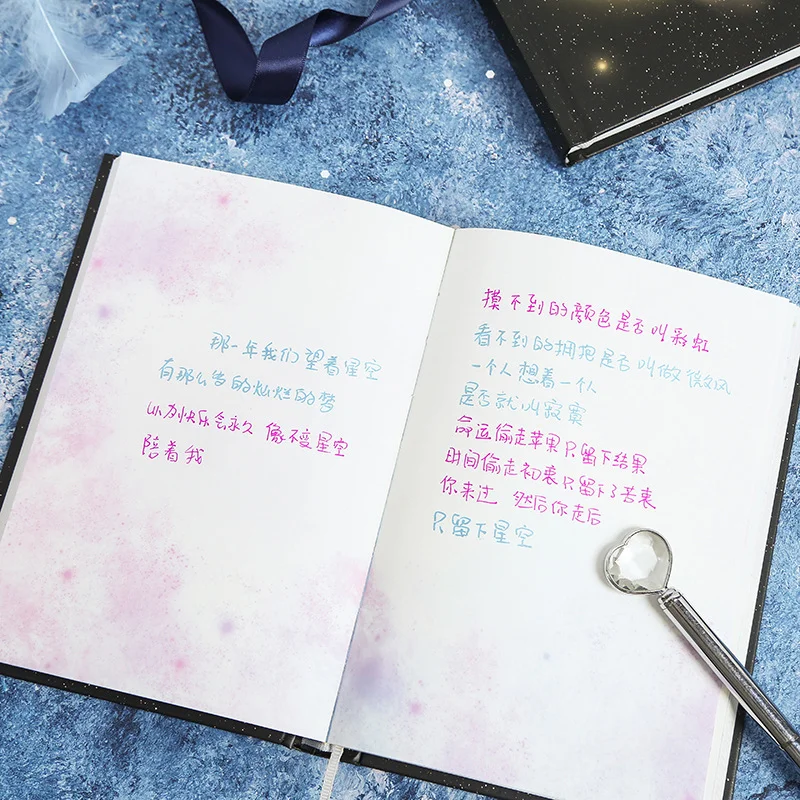 那一年我们望着星空
有那么当的灿烂的梦
以为快乐会永久 像不变星空
陪着我
摸不到的颜色是否叫彩虹
看不到的拥抱是否叫做微风
一个人想着一个人
是否就叫寂寞
命运偷走苹果只留下结果
时间偷走初衷只留下了苦衷
你来过 然后你走后
只留下星空